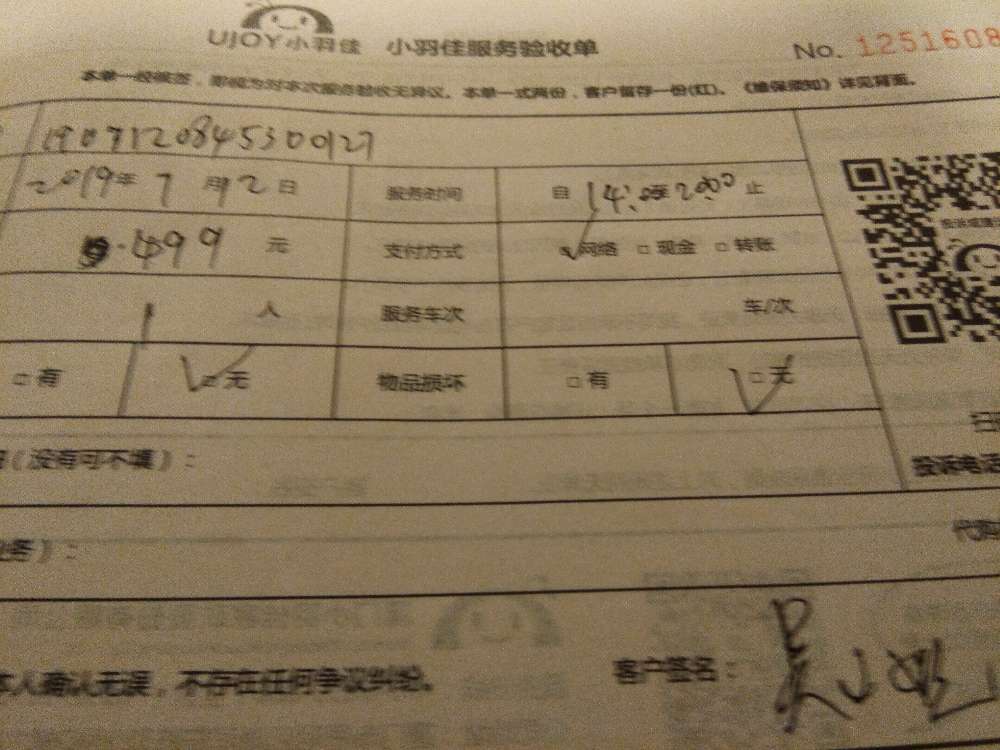 UJOY小羽佳 小羽佳服务验收单 No. 1251608
本单一经核签，即视为对本次服务验收无异议。本单一式两份，客户留存一份(红)。《维保须知》详见背面。
2019年7月12日 服务时间 自 14: 止
499元 支付方式 网络 □现金 □转账
1 人 服务车次 车/次
□有 □无 物品损坏 □有 □无
(没有可不填)： 投诉电话
务)： 代购
本人确认无误，不存在任何争议纠纷。 客户签名：